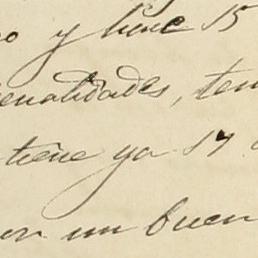 o y tiene 15
enalidades, ten
tiene ya 17
on un buen